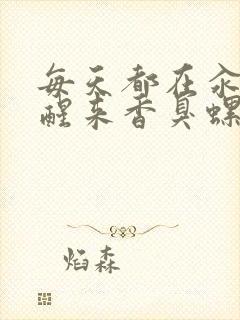 每天都在汆
醒来香臭螺
焰森